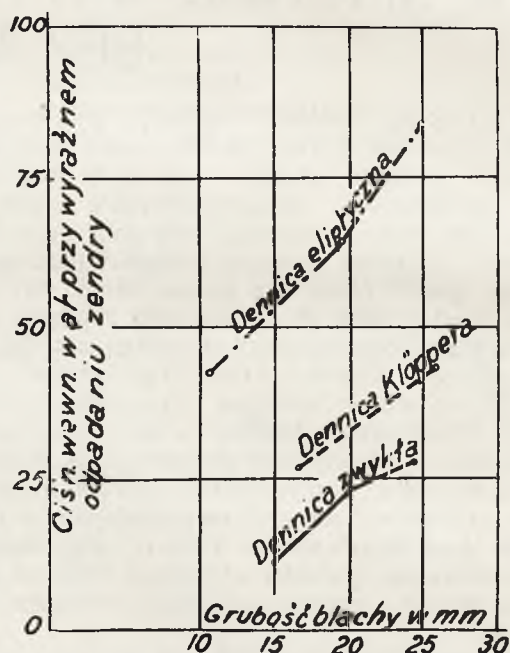 100
75
50
25
0
Ciśn. wewn. w at przy wyraźnem
odpadaniu zendry
Dennica eliptyczna
Dennica Klöppera
Dennica zwykła
Grubość blachy w mm
10 15 20 25 30